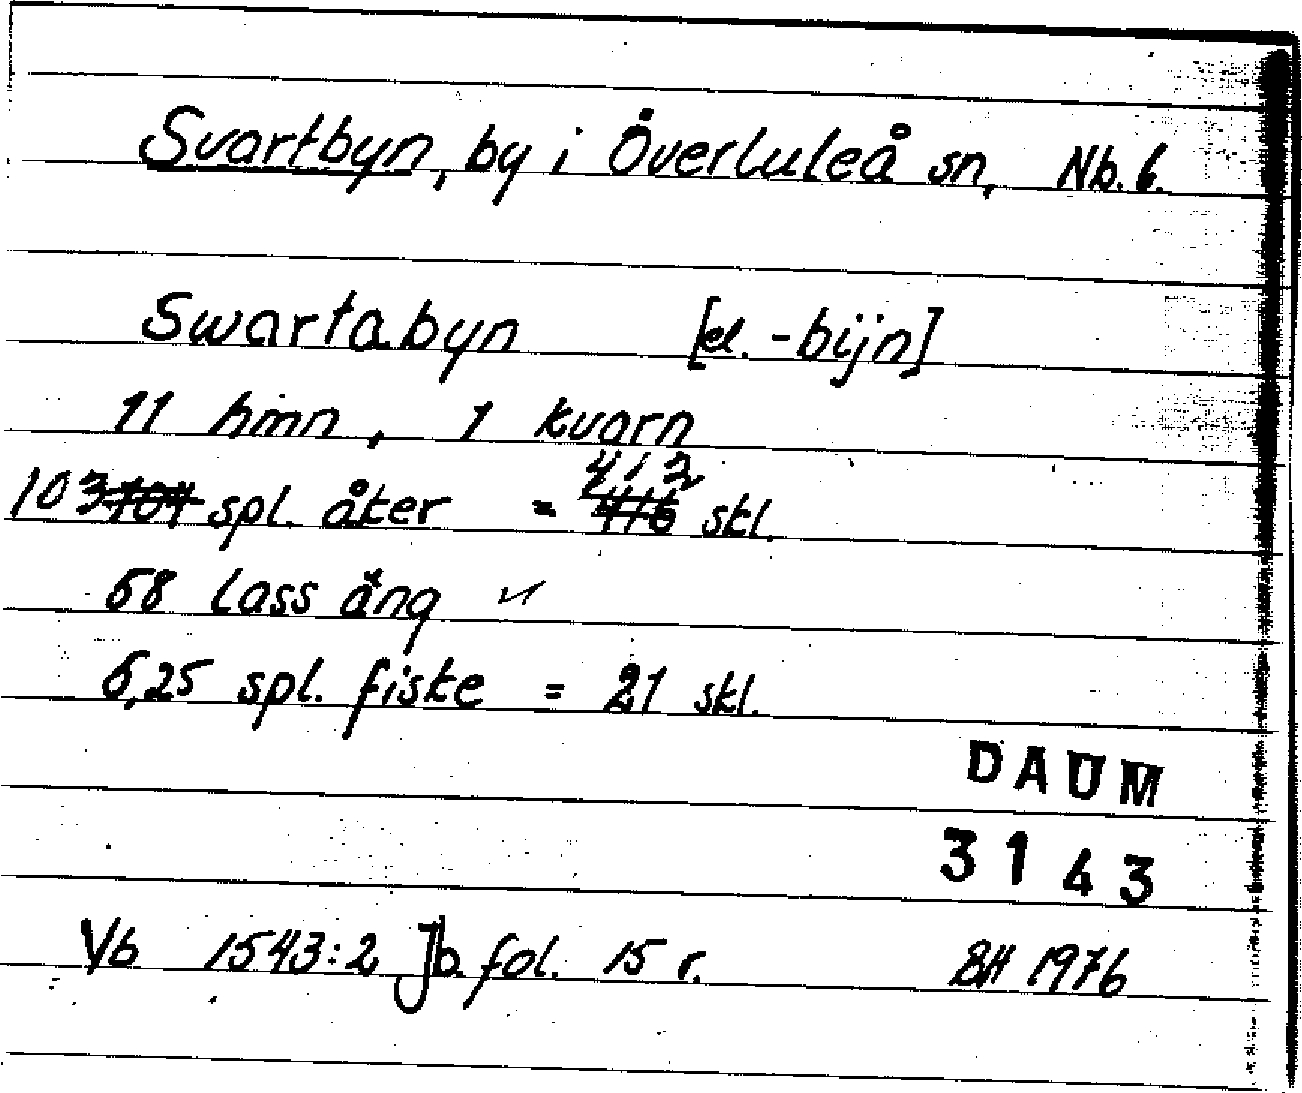 Svartbyn, by i Överluleå sn, Nb. 6.
Swartabyn [el. -bijn]
11 hmn, 1 kvarn
103 104 spl. åker = 412 416 skl.
68 lass äng ✓
5,25 spl. fiske = 21 skl.
DAUM
3143
Vb 1543:2 Jb. fol. 15 r. BH 1976